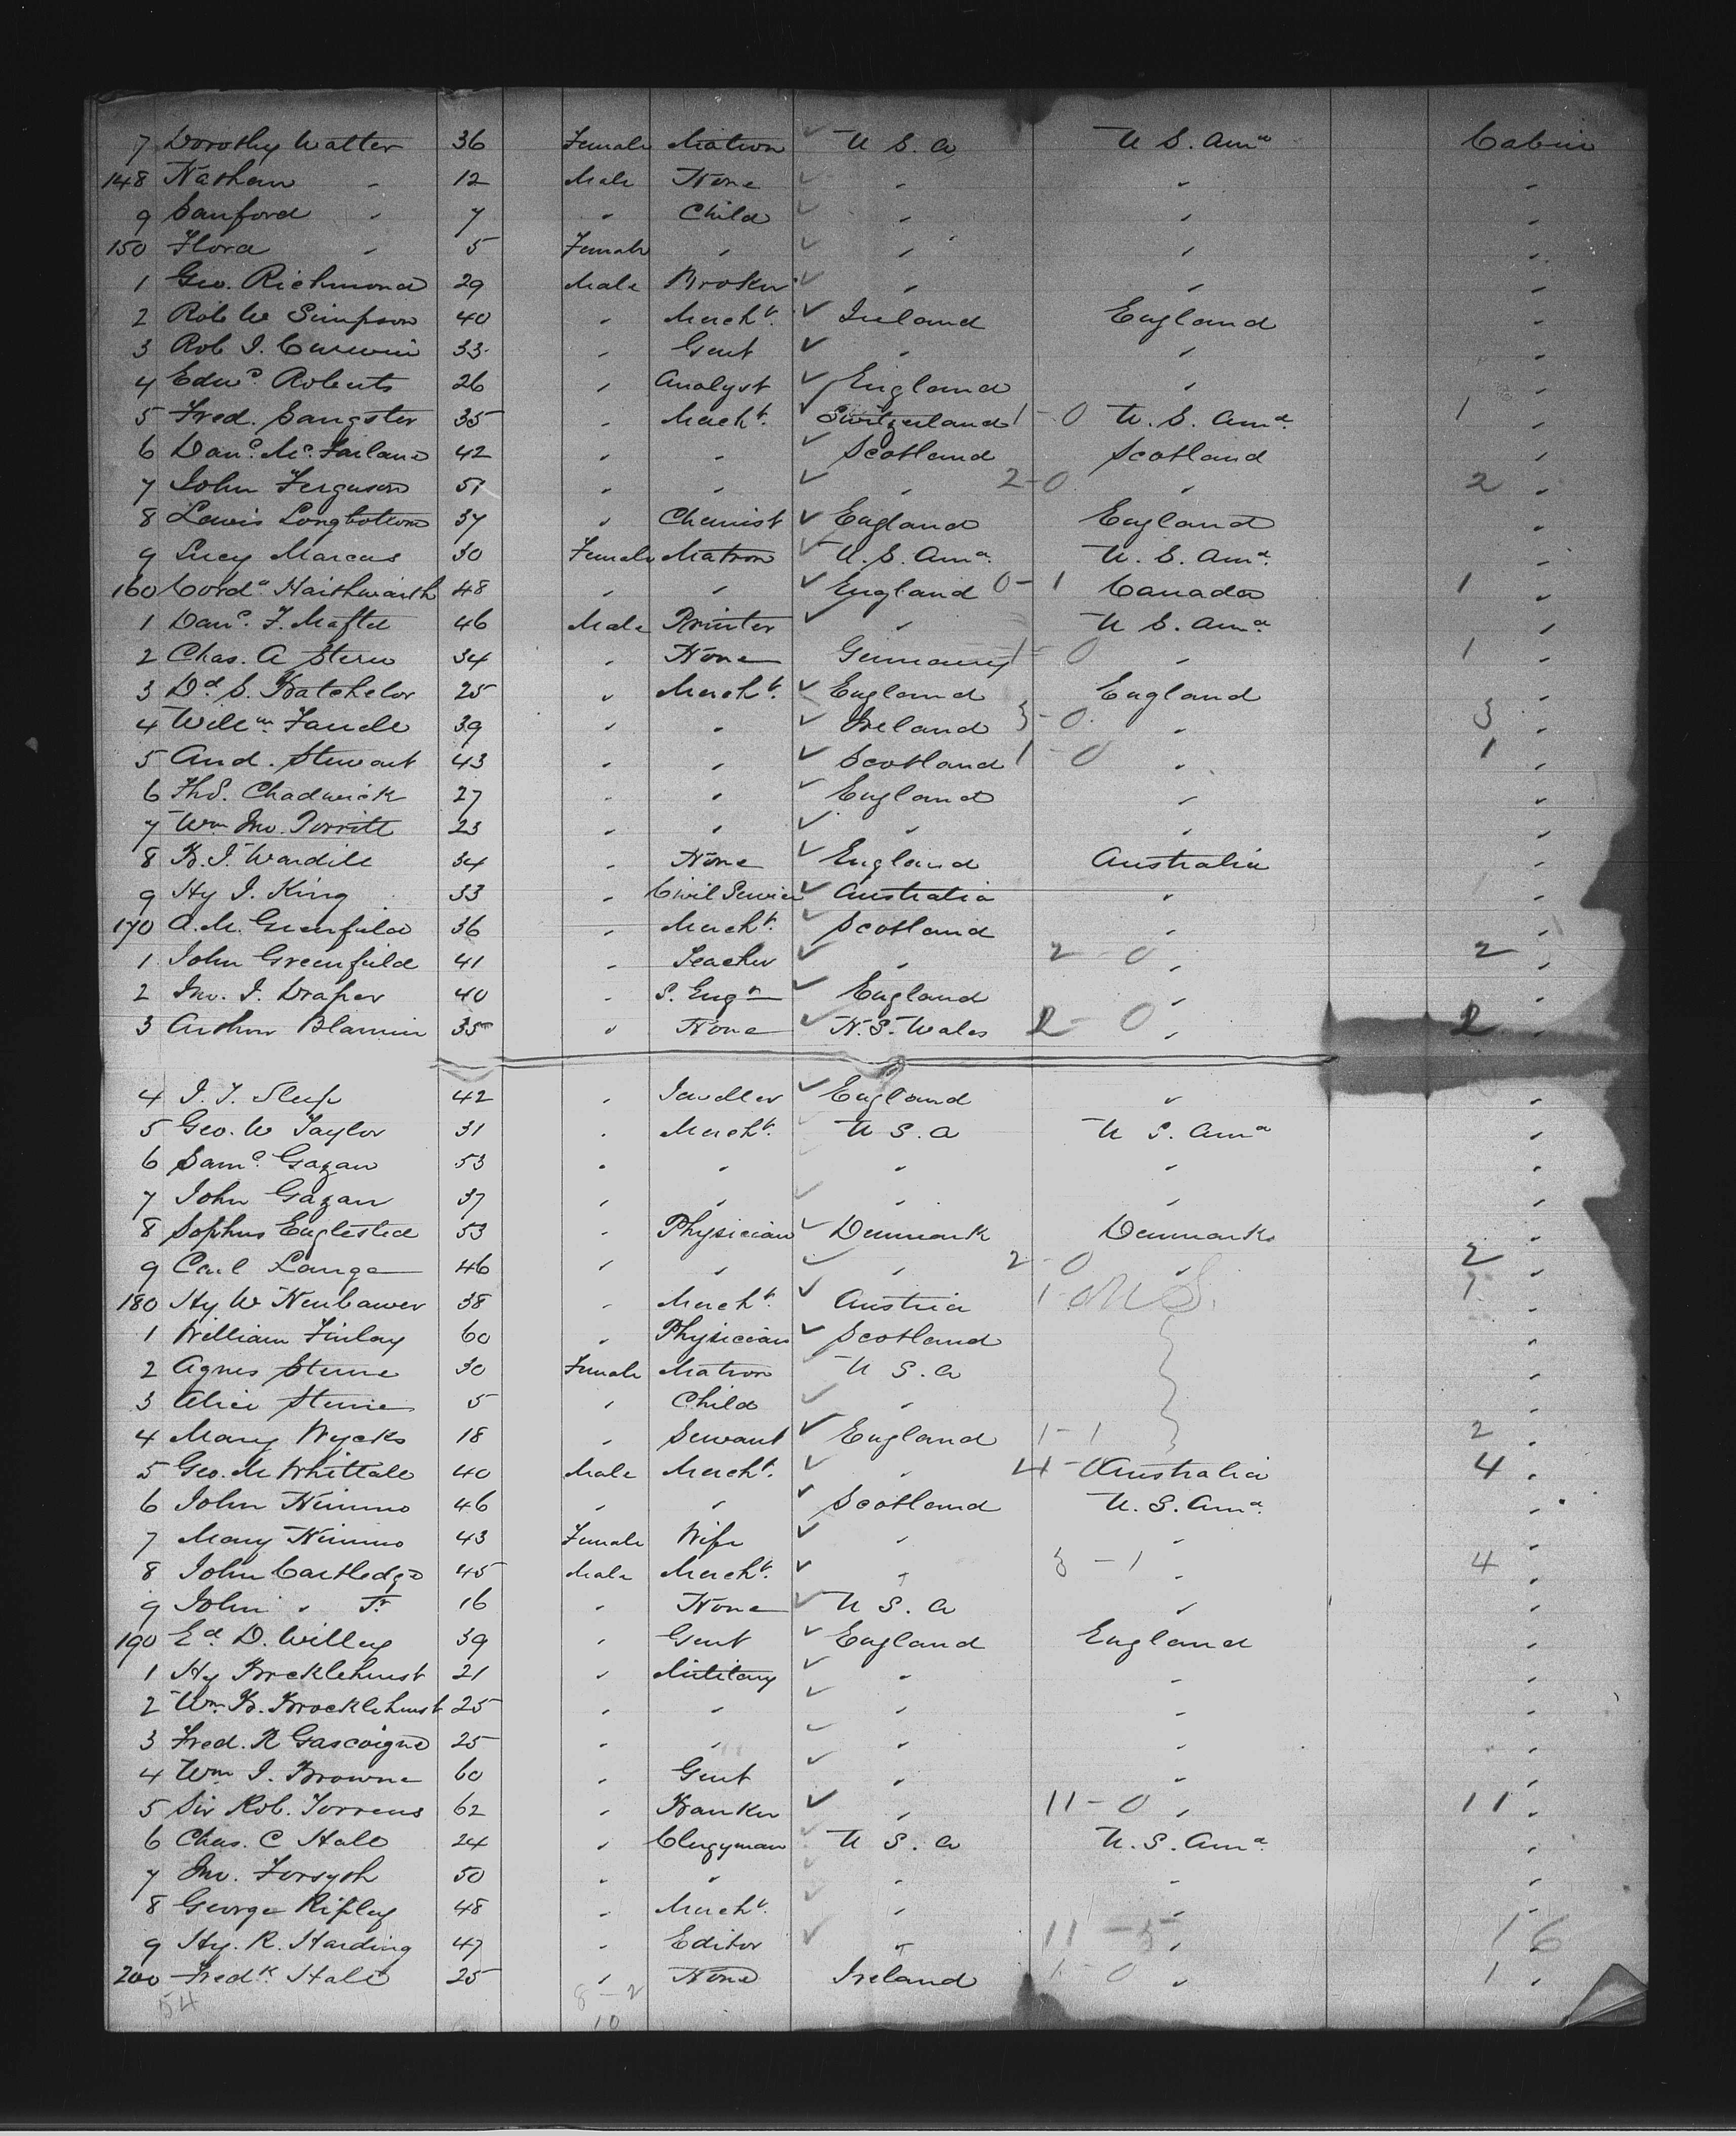 7 Dorothy Walter 36 Female Matron ✓ U S. A U S. Amᵃ Cabin
148 Nathan " 12 Male None ✓ " " "
9 Sanford " 7 " Child ✓ " " "
150 Flora " 5 Female " ✓ " " "
1 Geo. Richmond 29 Male Broker ✓ " " "
2 Rob W Simpson 40 " Mercht. ✓ Ireland England "
3 Rob J. 33 " Gent ✓ " " "
4 Edwd. Roberts 26 " Analyst ✓ England " "
5 Fred. Sangster 35 " Mercht. ✓ Switzerland 1-0 U. S. Amᵃ 1 "
6 Danl. Mc. Farland 42 " " ✓ Scotland Scotland "
7 John Ferguson 51 " " ✓ " 2-0 " 2 "
8 Lewis Longbottom 37 " Chemist ✓ England England "
9 Lucy Marcus 30 Female Matron ✓ U. S. Amᵃ U. S. Amᵃ "
160 Cordᵃ 48 " " ✓ England 0-1 Canada 1 "
1 Danl. F. 46 Male Printer ✓ " U S. Amᵃ "
2 Chas. A Stern 34 " None Germany 1-0 " 1 "
3 Dd S. Batchelor 25 " Mercht. ✓ England England "
4 Willm. 39 " " ✓ Ireland 3-0 " 3 "
5 And. Stewart 43 " " ✓ Scotland 1-0 " 1 "
6 Thos. Chadwick 27 " " ✓ England " "
7 Wm Jno. Porritt 23 " " ✓ " " "
8 B. J. Wardill 34 " None ✓ England Australia "
9 Hy J. King 33 " Civil Service ✓ Australia " "
170 A. M. Greenfield 36 " Mercht. ✓ Scotland " "
1 John Greenfield 41 " Teacher ✓ " 2-0 " 2 "
2 Jno. J. Draper 40 " S. Engr ✓ England " "
3 Arthur Blannin 35 " None ✓ N. S. Wales 2-0 " 2 "
4 J. T. Sleep 42 " Jeweller ✓ England " "
5 Geo. W Taylor 31 " Mercht. U S. A U S. Amᵃ "
6 Saml. Gazan 53 " " " " "
7 John Gazan 37 " " ✓ " " "
8 Sophus Englested 53 " Physician ✓ Denmark Denmark "
9 Carl Lange 46 " " ✓ " 2-0 " 2 "
180 Hy W Neubauer 38 " Mercht. ✓ Austria 1-0 U S. 1 "
1 William Finlay 60 " Physician ✓ Scotland "
2 Agnes Sterne 30 Female Matron ✓ U S. A "
3 Alice Sterne 5 " Child ✓ " "
4 Mary Wycks 18 " Servant ✓ England 1-1 2 "
5 Geo. M Whittall 40 Male Mercht. ✓ " 4-0 Australia 4 "
6 John Nimmo 46 " " ✓ Scotland U. S. Amᵃ "
7 Mary Nimmo 43 Female Wife ✓ " " "
8 John Cartledge 45 Male Mercht. ✓ " 3-1 " 4 "
9 John " Jr. 16 " None ✓ U S. A " "
190 Ed D. Willey 39 " Gent ✓ England England "
1 Hy Brocklehurst 21 " Military ✓ " " "
2 Wm. B. Brocklehurst 25 " " ✓ " " "
3 Fred. R Gascoigne 25 " " ✓ " " "
4 Wm J. Browne 60 " Gent ✓ " " "
5 Sir Rob. Torrens 62 " Banker ✓ " 11-0 " 11 "
6 Chas. C Hall 24 " Clergyman U S. A U. S. Amᵃ "
7 Jno. Forsyth 50 " " ✓ " " "
8 George Ripley 48 " Mercht. ✓ " " "
9 Hy. R. Harding 47 " Editor ✓ " 11-5 " 16 "
200 Fredk. Hall 25 " None Ireland 1-0 " 1 "
54 8-2
10